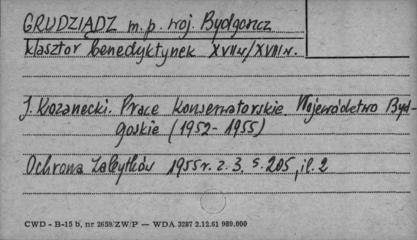 GRUDZIĄDZ m.p. woj. Bydgoszcz
klasztor benedyktynek XVIIw/XVIIIw.
J. Kozanecki. Prace Konserwatorskie. Województwo Byd-
goskie (1952-1955)
Ochrona Zabytków 1955 r. z. 3. s. 205, il. 2
CWD - B-15 b, nr 2658/ZW/P — WDA 3287 2.12.61 989.000